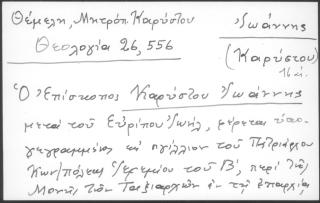 Θέμελη, Μητρόπ. Καρύστου Ἰωάννης
Θεολογία 26, 556 (Καρύστου)
16 αἰ.
Ὁ Ἐπίσκοπος Καρύστου Ἰωάννης
μετά τοῦ Εὐρίπου Ἰωήλ, φέρεται ὑπο-
γεγραμμένος εἰς σιγίλλιον τοῦ Πατριάρχου
Κων/πόλεως Ἰερεμίου τοῦ Β΄, περί τῆς
Μονῆς τῶν Ταξιαρχῶν ἐν τῇ ἐπαρχίᾳ